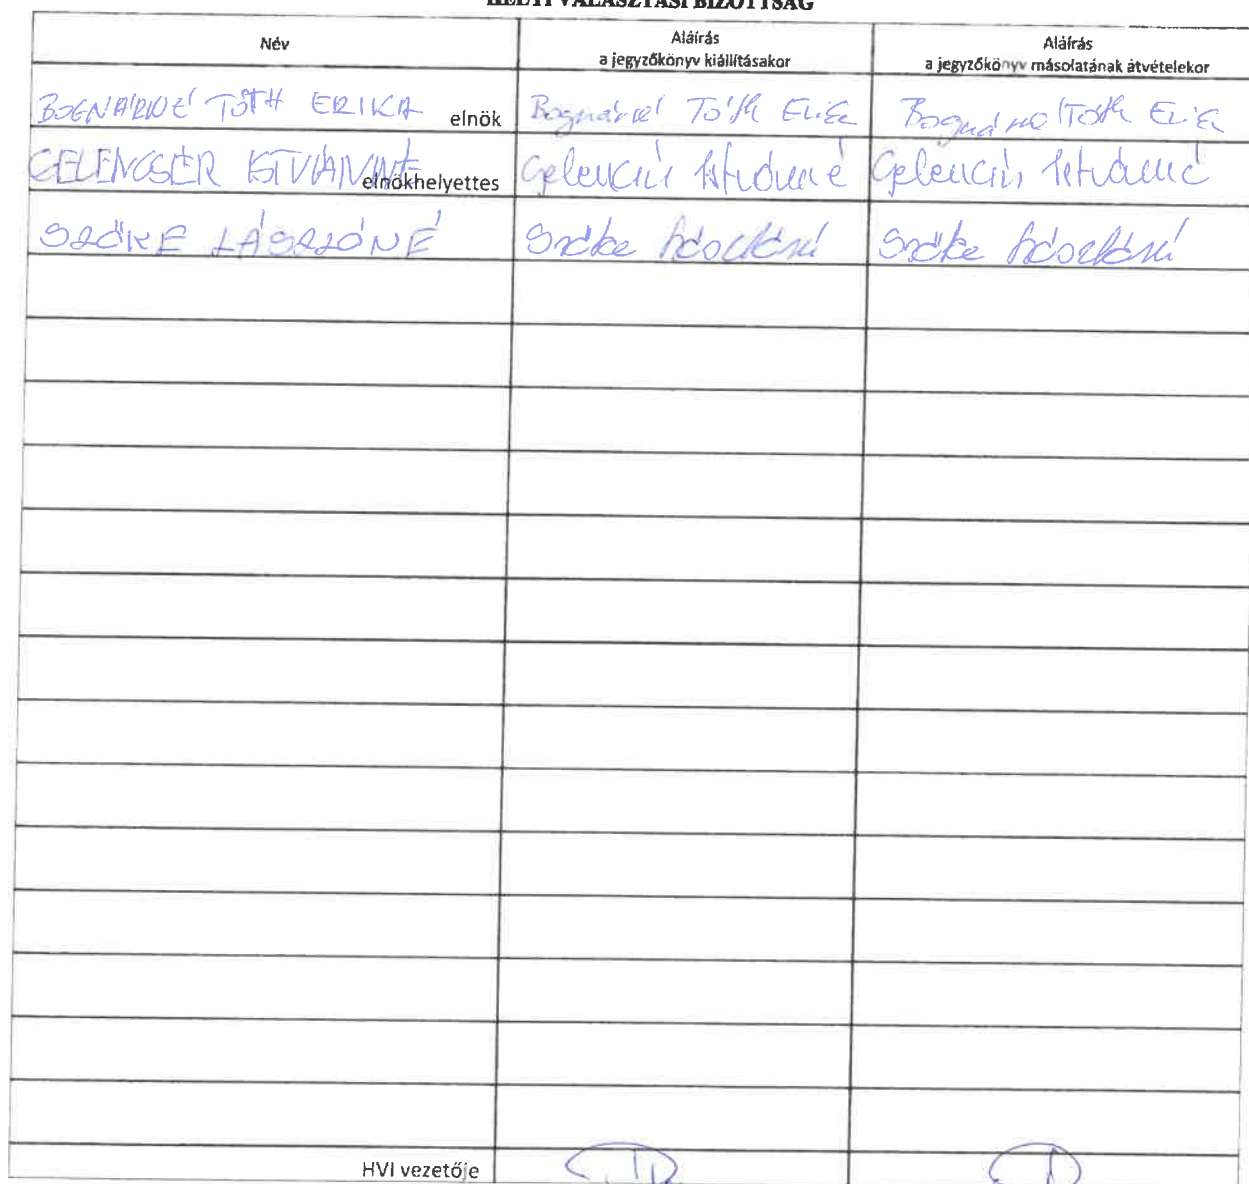 HELYI VÁLASZTÁSI BIZOTTSÁG
Név
Aláírás
a jegyzőkönyv kiállításakor
Aláírás
a jegyzőkönyv másolatának átvételekor
BOGNÁRNÉ TÓTH ERIKA elnök Bognárné Tóth Erika Bognárné Tóth Erika
GELENCSÉR ISTVÁNNÉ elnökhelyettes Gelencsér Istvánné Gelencsér Istvánné
SZŐKE LÁSZLÓNÉ Szőke Lászlóné Szőke Lászlóné
HVI vezetője